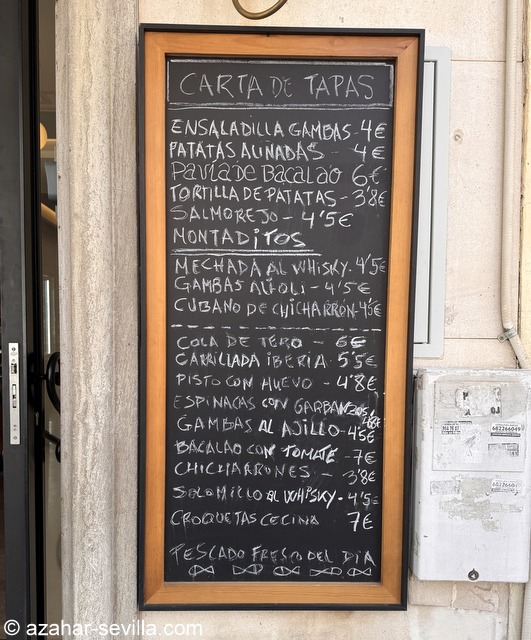 CARTA DE TAPAS
ENSALADILLA GAMBAS - 4€
PATATAS ALIÑADAS - 4€
PAVÍA DE BACALAO 6€
TORTILLA DE PATATAS - 3'8€
SALMOREJO - 4'5€
MONTADITOS
MECHADA AL WHISKY - 4'5€
GAMBAS ALIOLI - 4'5€
CUBANO DE CHICHARRÓN - 4'5€
COLA DE TORO - 6€
CARRILLADA IBERIA 5'5€
PISTO CON HUEVO - 4'8€
ESPINACAS CON GARBANZOS
GAMBAS AL AJILLO - 4'5€
BACALAO CON TOMATE - 7€
CHICHARRONES - 3'8€
SOLOMILLO AL WHISKY - 4'5
CROQUETAS CECINA 7€
PESCADO FRESCO DEL DÍA
© azahar-sevilla.com